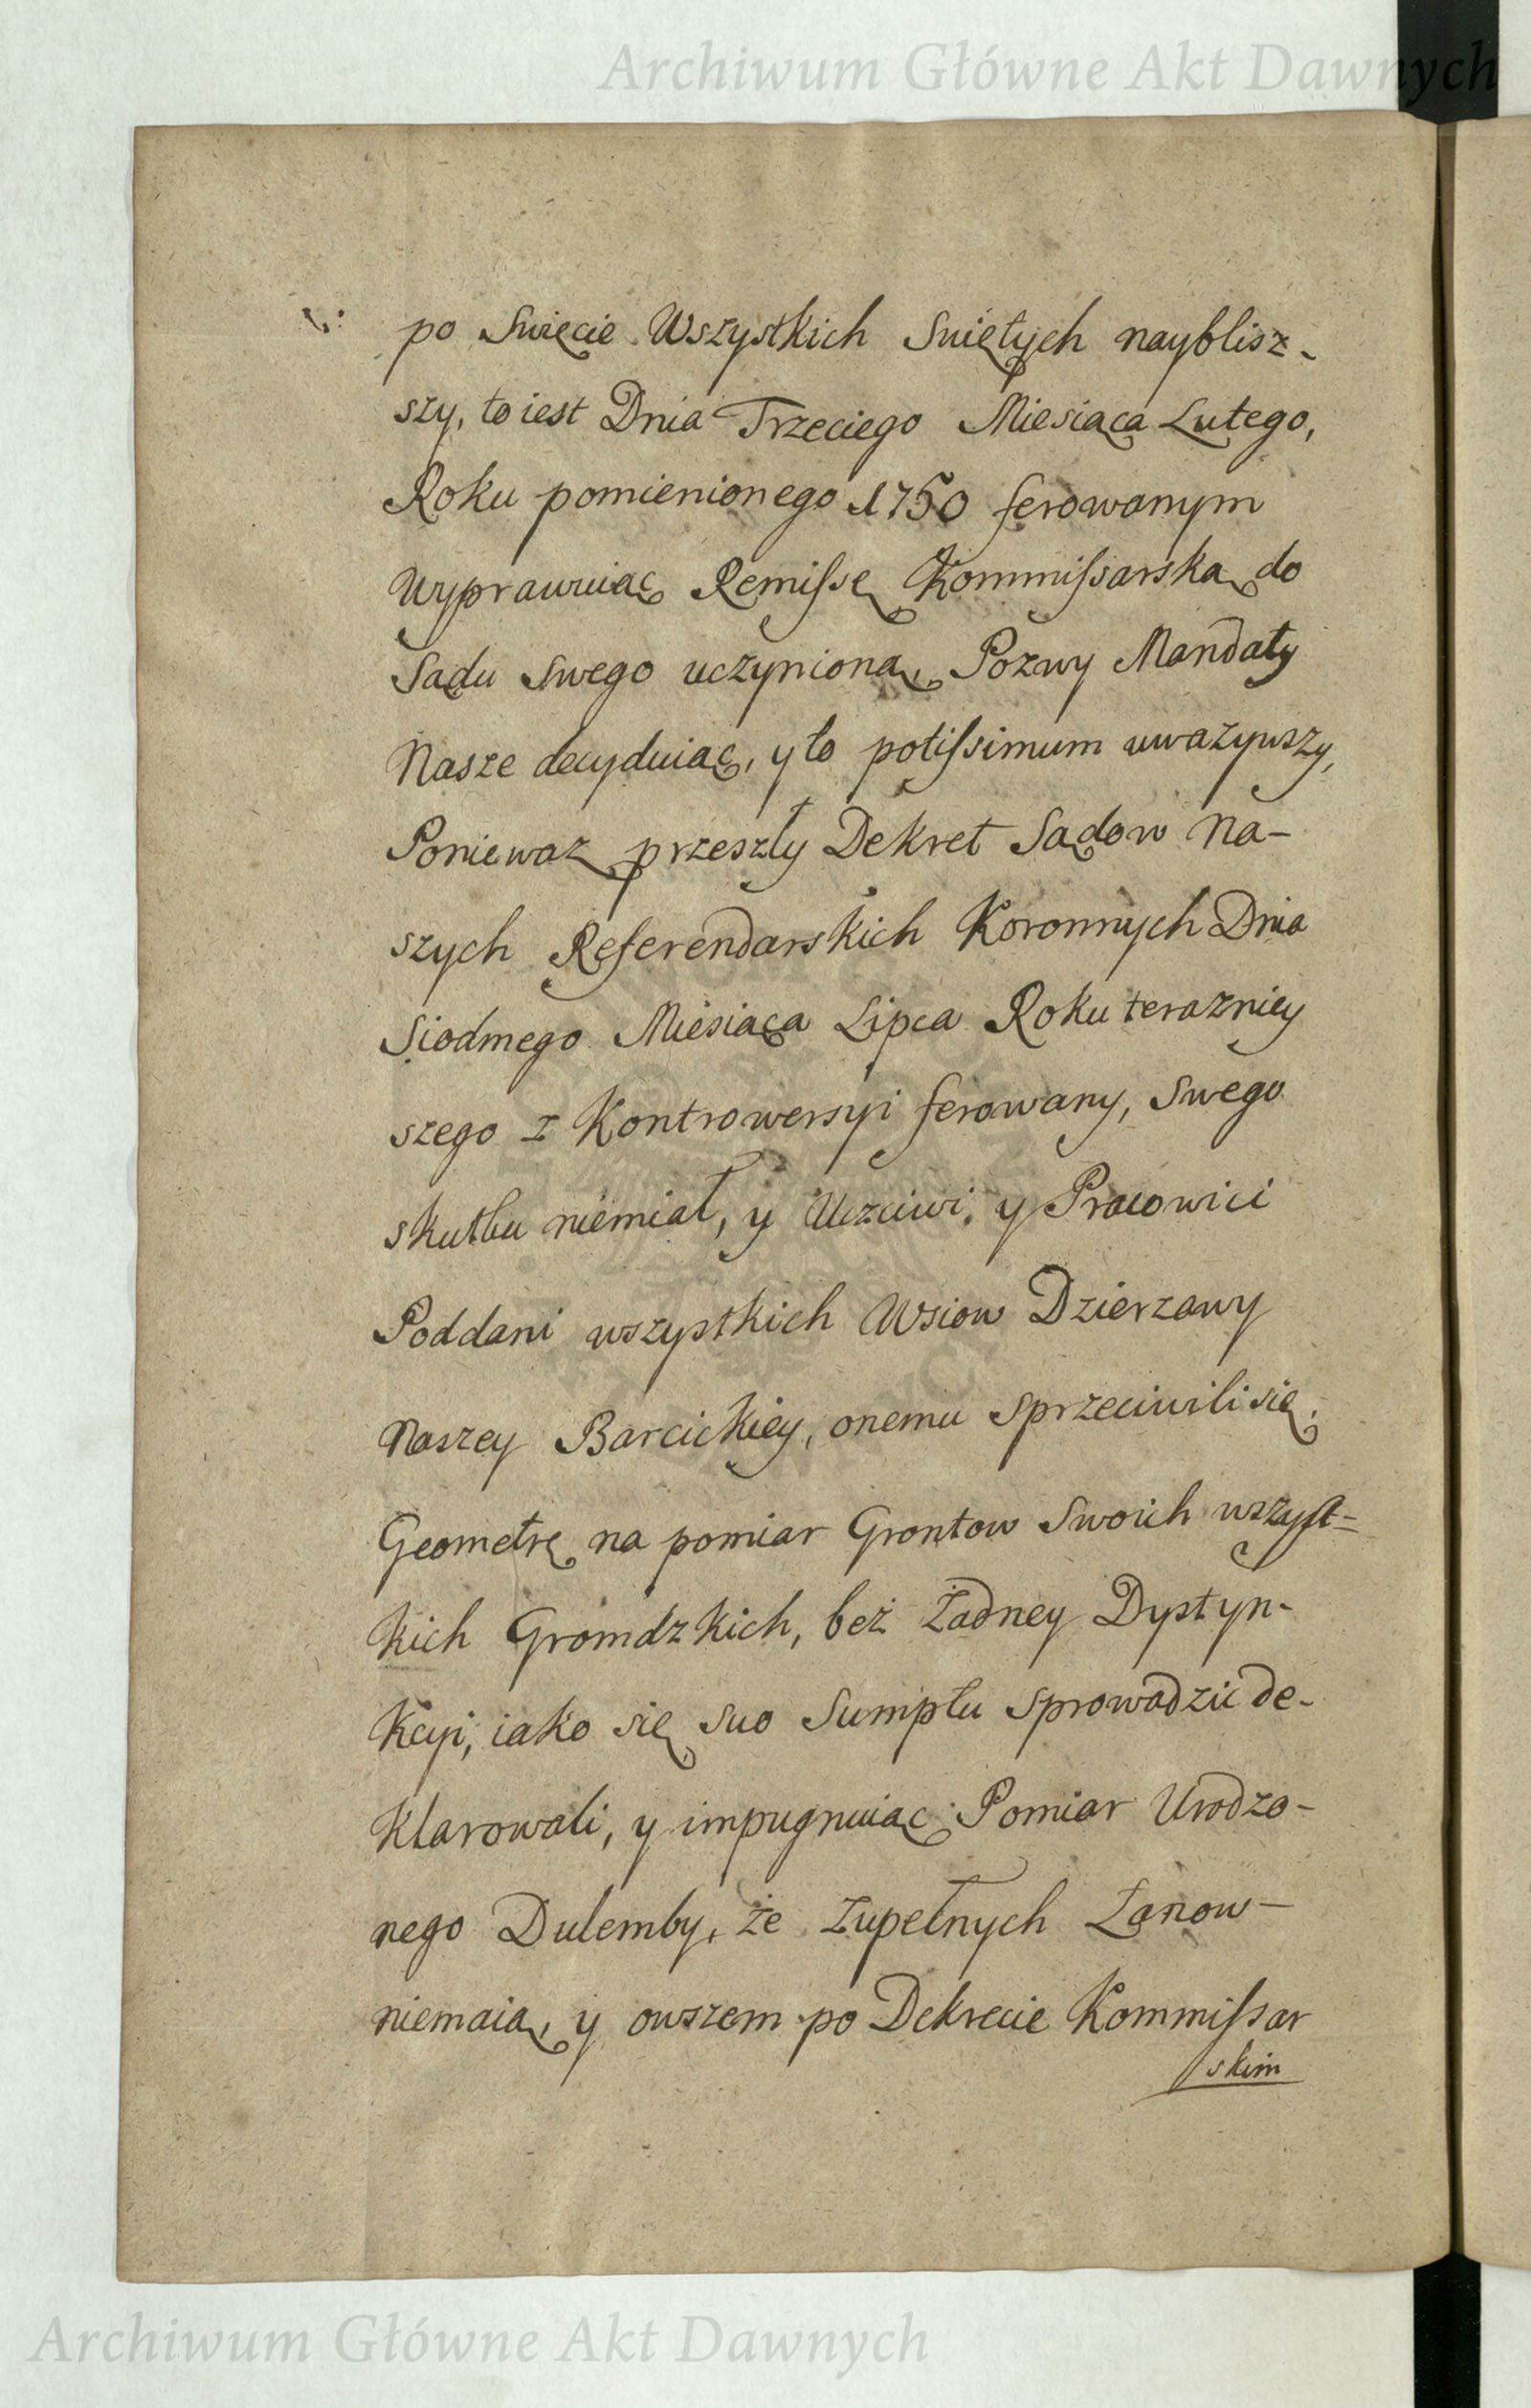 Archiwum Główne Akt Dawnych
po Swięcie Wszystkich Swiętych nayblisz-
szy, to iest Dnia Trzeciego Miesiąca Lutego,
Roku pomienionego 1750 ferowanym
wyprawuiąc Remissę Kommissarską do
Sądu Swego uczynioną, Pozwy Mandaty
Nasze decyduiąc, y to potissimum uważywszy,
Poniewaz przeszły Dekret Sądow Na-
szych Referendarskich Koronnych Dnia
Siodmego Miesiąca Lipca Roku terazniey
szego z Kontrowersyi ferowany, Swego
skutku niemiał, y Uczciwi, y Pracowici
Poddani wszystkich Wsiow Dzierzawy
Naszey Barcickiey, onemu sprzeciwili się,
Geometrę na pomiar Grontow Swoich wszyst=
kich Gromdzkich, beż Żadney Dystyn-
kcyi, iako się suo Sumptu sprowadzić de-
klarowali, y impugnuiąc Pomiar Urodzo-
nego Dulemby, że zupełnych Łanow-
niemaią, y owszem po Dekrecie Kommissar
skim
Archiwum Główne Akt Dawnych